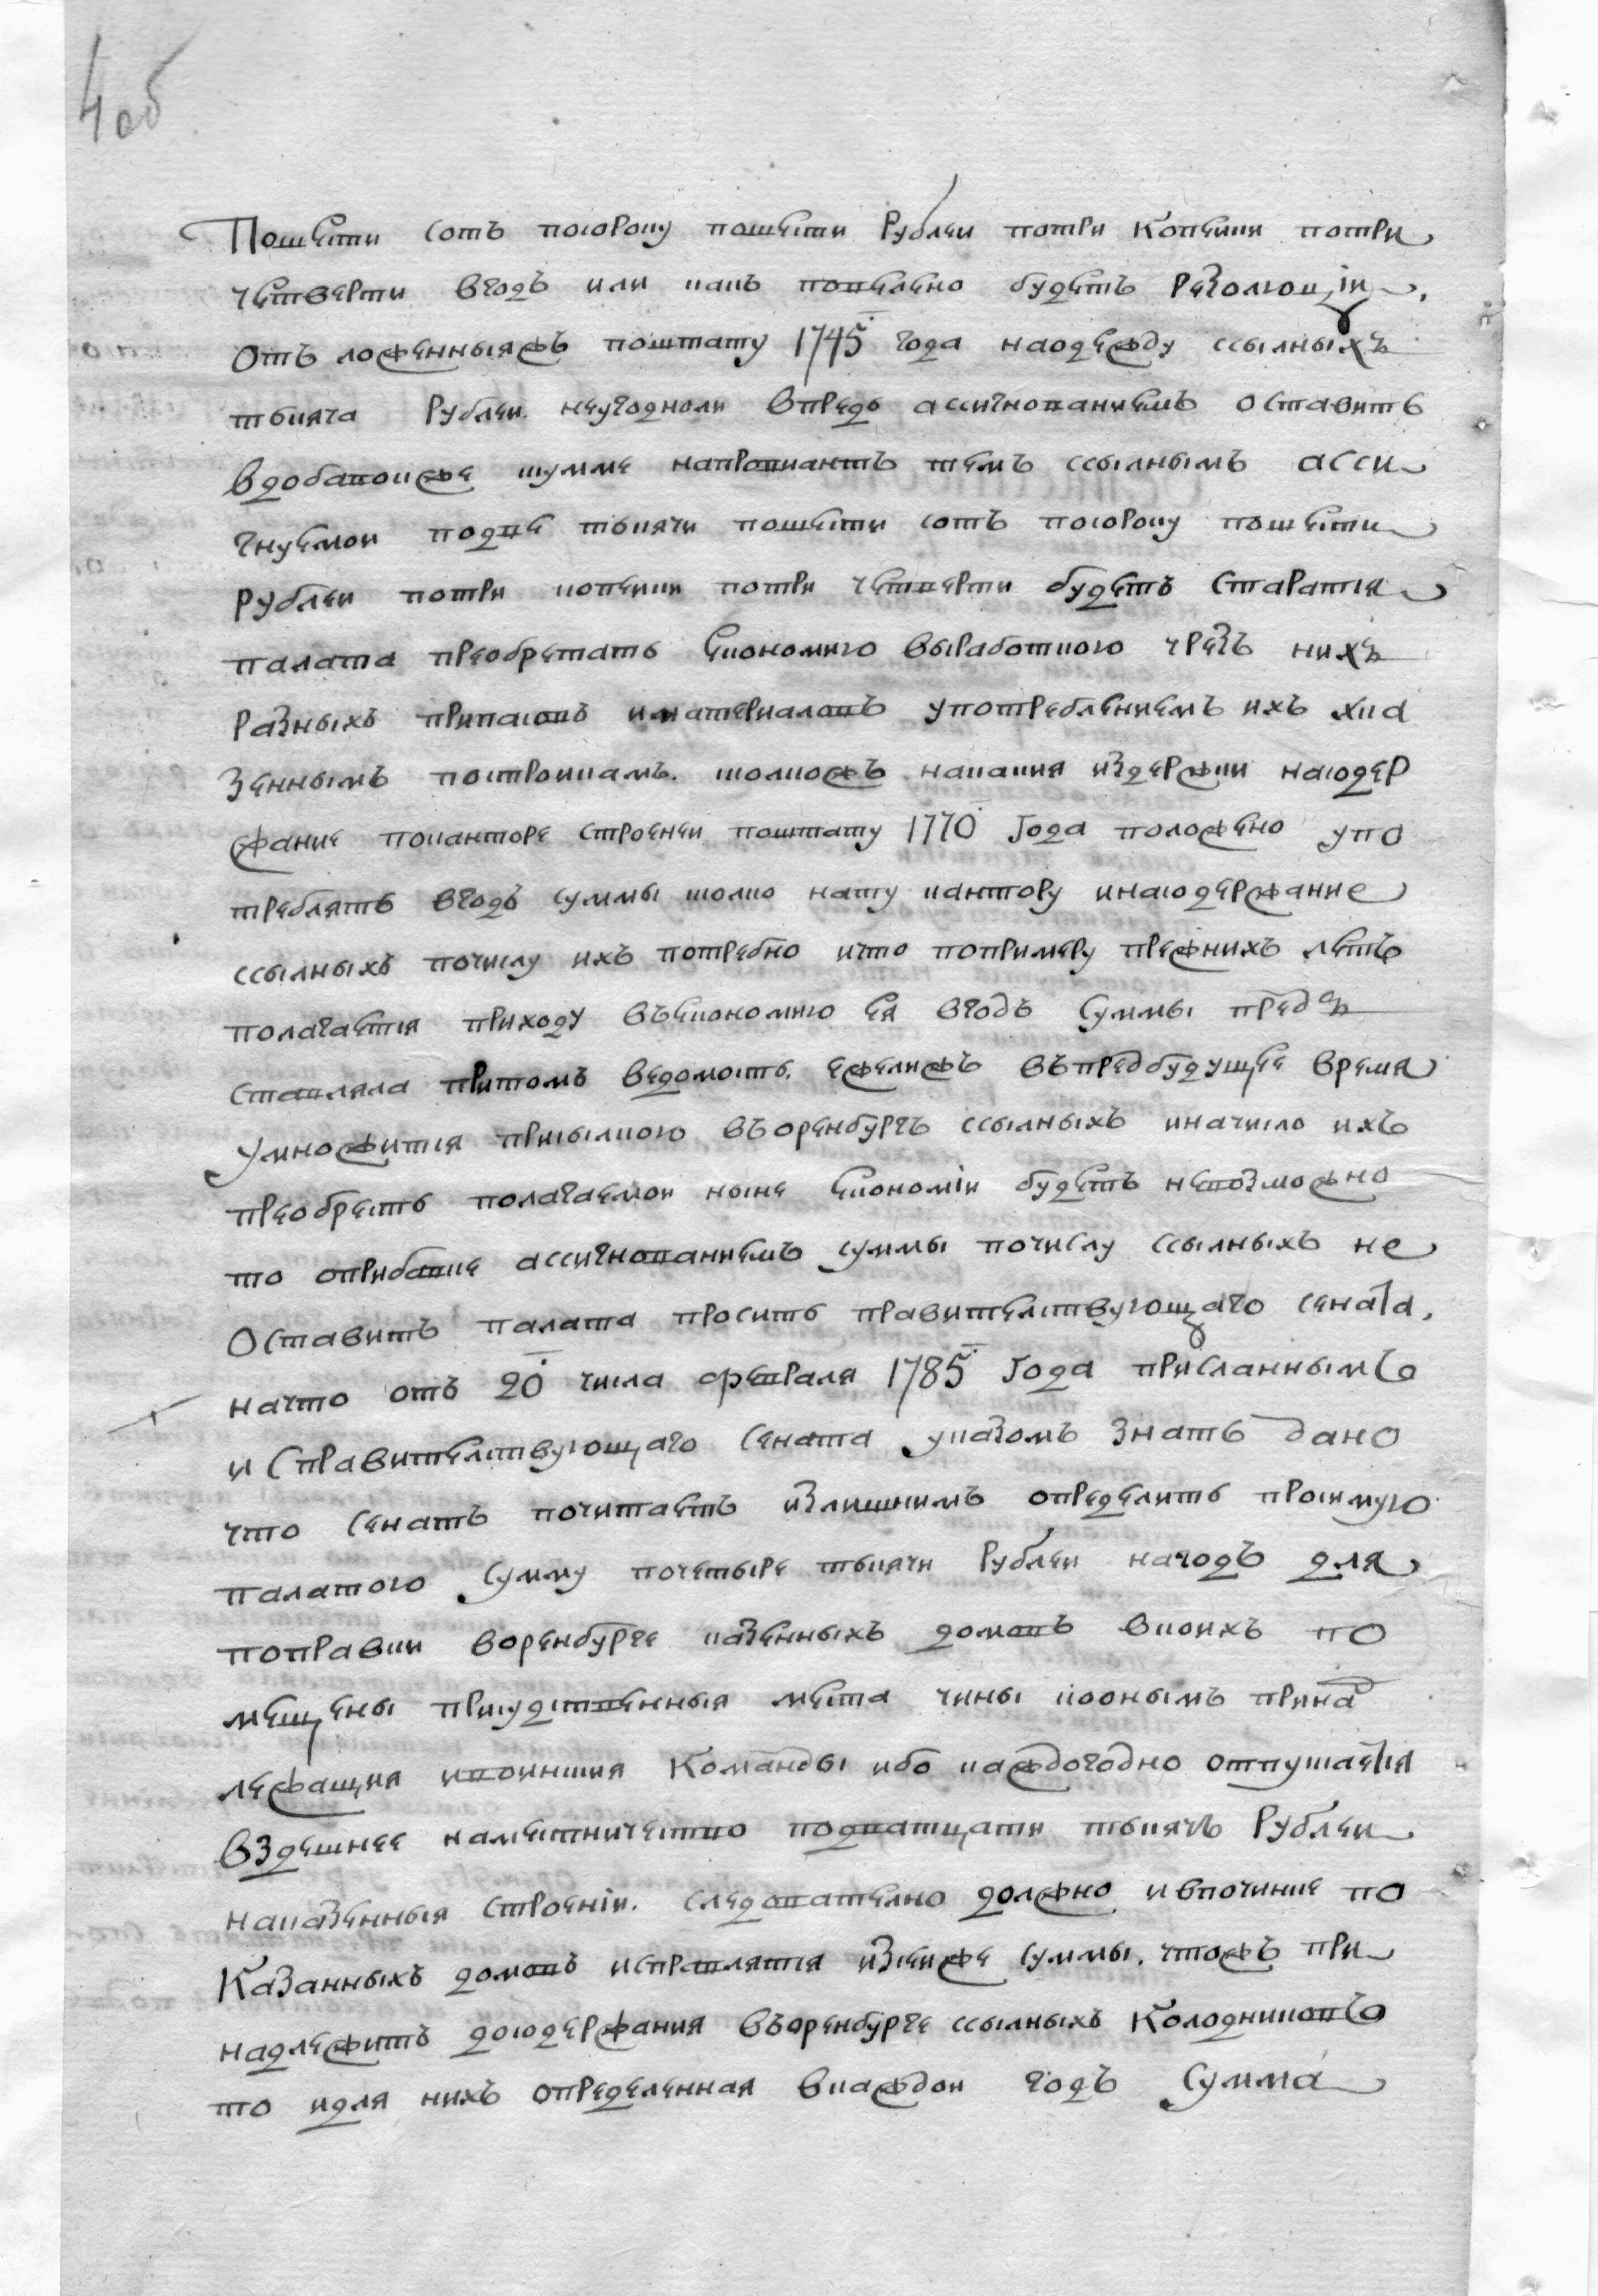 4 об
Пошести сотъ посороку пошести рублеи потри копеики потри
четверти вгодъ или какъ повелено будетъ резолюціи,
отъ ложенныяжъ поштату 1745 года наодежду ссылныхъ
тысяча рублеи неугодноли впредь ассигнованиемъ оставить
вдобавокже сумме напровиантъ темъ ссылнымъ асси
гнуемои подве тысячи пошести сотъ посороку пошести
рублеи потри копеики потри четверти будетъ старатся
палата преобретать економию выработкою чрезъ нихъ
разныхъ припасовъ иматериаловъ употреблениемъ ихъ хка
зеннымъ построикамъ. толкожъ накакия издержки насодер
жание поканторе строенеи поштату 1770 года положено упо
треблять вгодъ суммы толко нату кантору инасодержание
ссылныхъ почислу ихъ потребно ичто попримеру прежнихъ летъ
полагается приходу въекономию ея вгодъ суммы предъ
ставляла притомъ ведомость. ежелижъ въпредбудущее время
умножится присылкою въоренбургъ ссылныхъ иначисло ихъ
преобресть полагаемои ныне економіи будетъ невозможно
то оприбавке ассигнованиемъ суммы почислу ссылныхъ не
оставить палата просить правителствующаго сената,
начто отъ 20 числа февраля 1785 года присланнымъ
и справителствующаго сената указомъ знать дано
что сенатъ почитаетъ излишнимъ определить просимую
палатою сумму почетыре тысячи рублеи нагодъ для
поправки воренбурге казенныхъ домовъ вкоихъ по
мещены присудственныя места чины иоонымъ прина
лежащия ивоинския команды ибо каждогодно отпущается
вздешнее наместничество подватцати тысячь рублеи
наказенныя строеніи. следователно должно ивпочинке по
казанныхъ домовъ исправлятся изсеиже суммы. чтожъ при
надлежитъ досодержания въоренбурге ссылныхъ колодниковъ
то идля нихъ определенная вкаждои годъ сумма